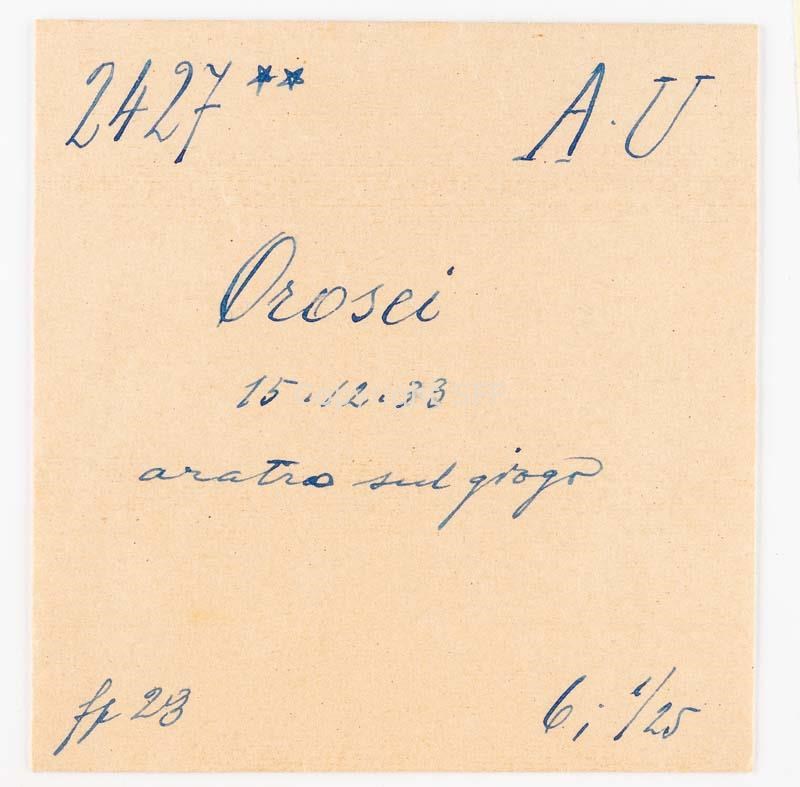 2427** A.U
Orosei
15.12.33
aratro sul giogo
fp 23 6; 1/25